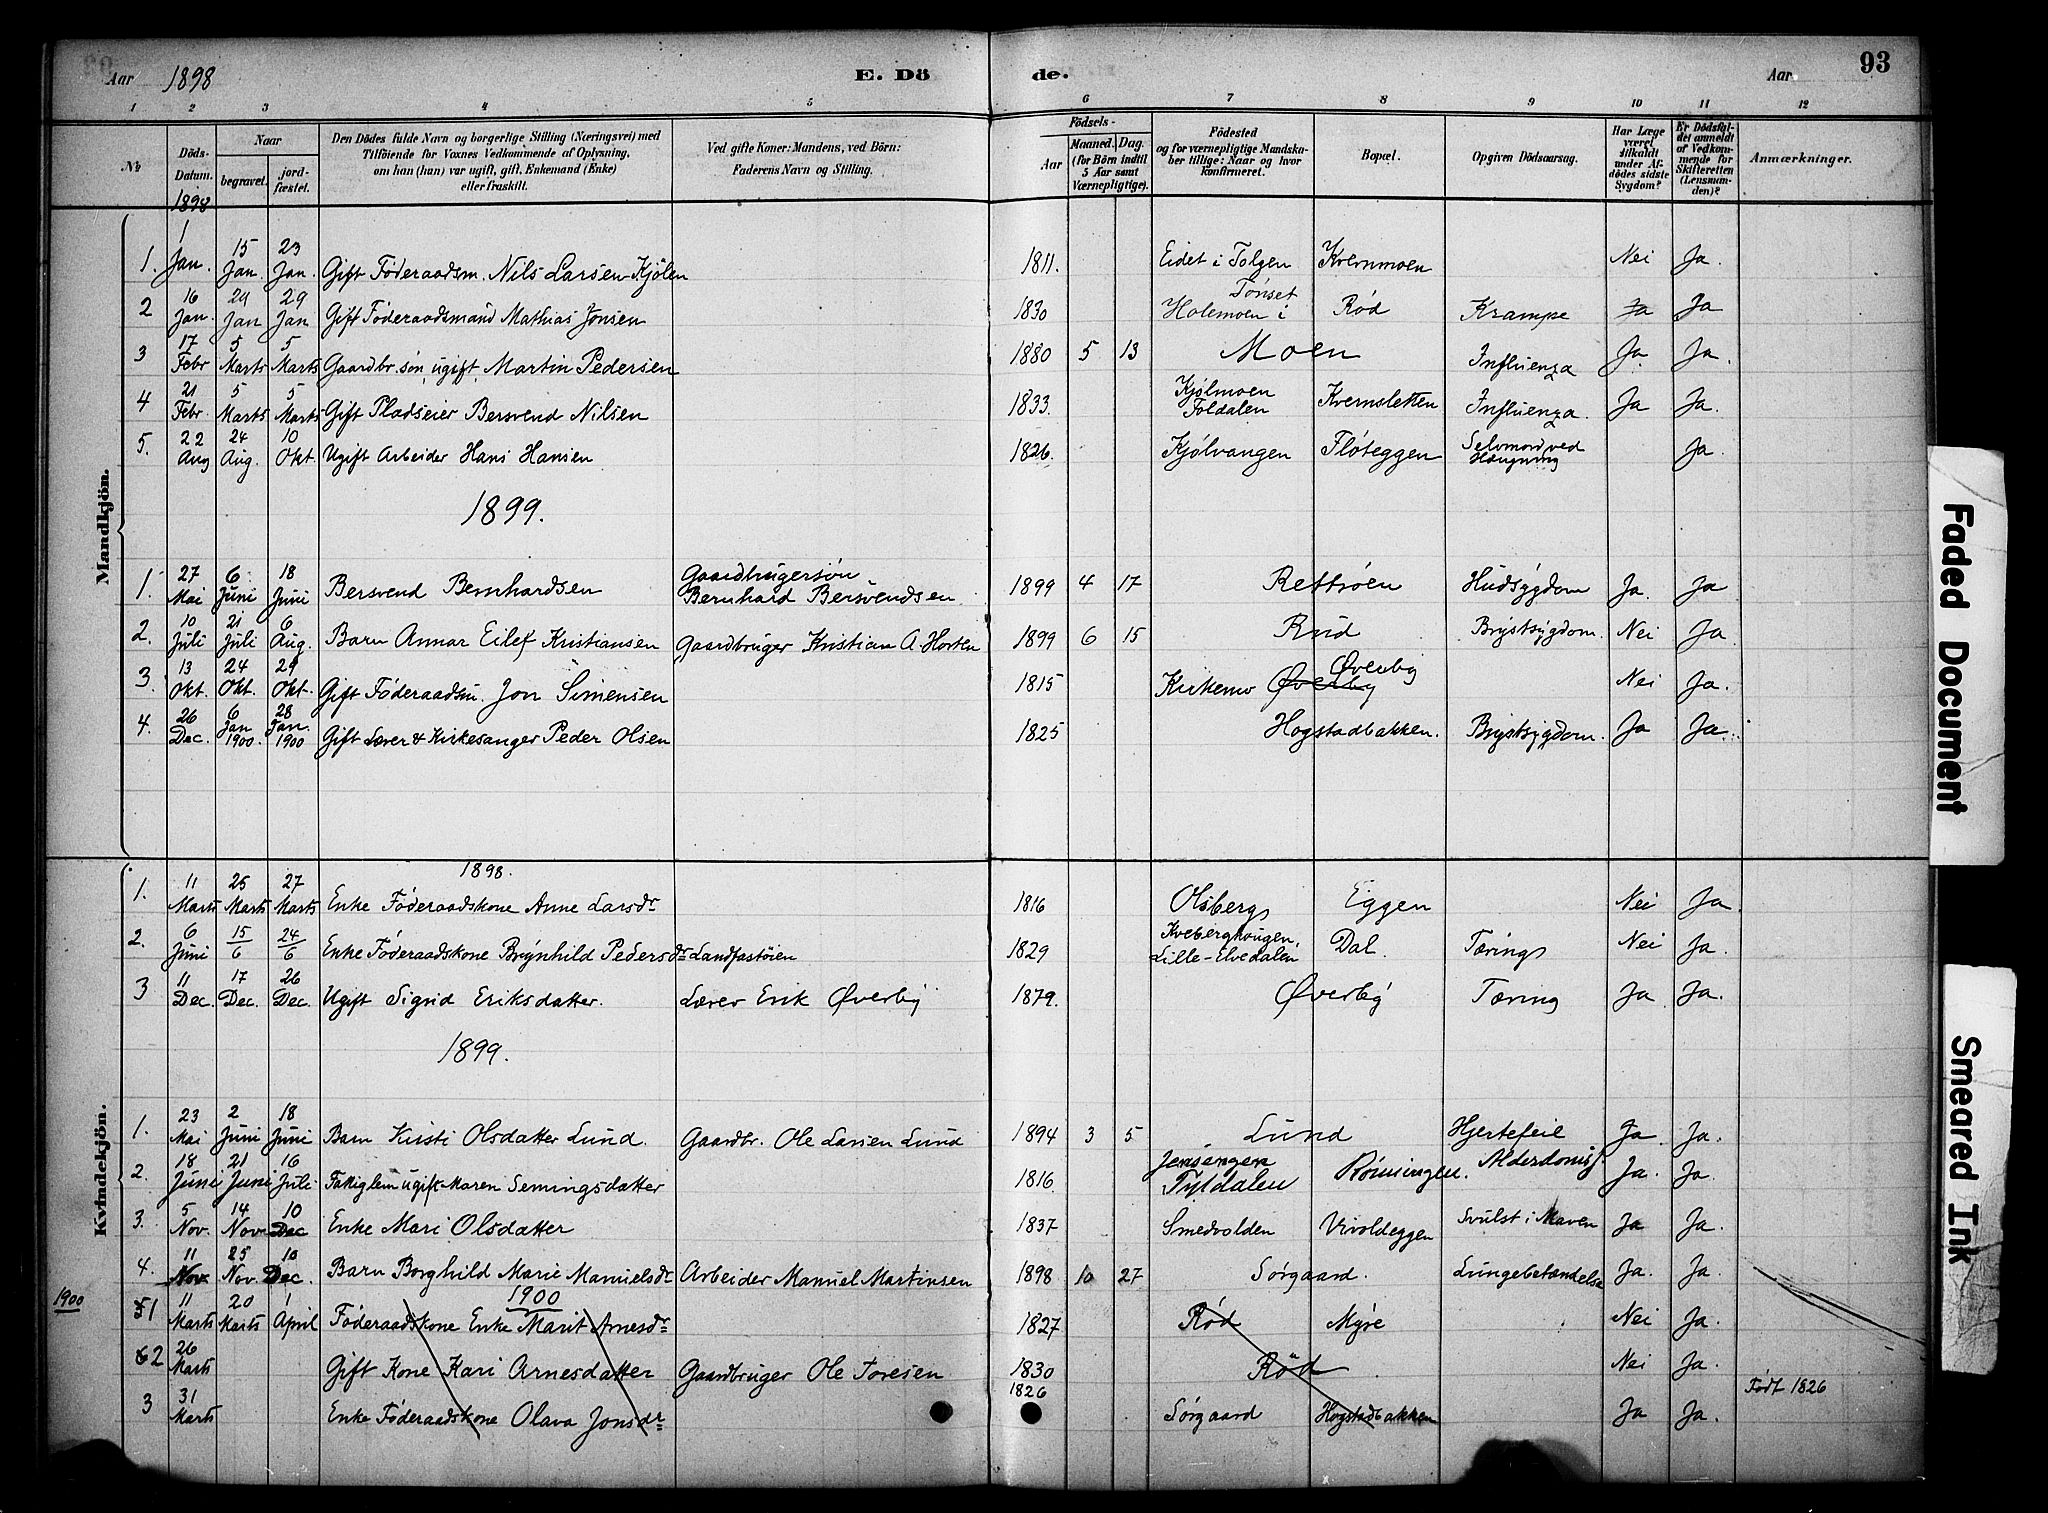 Aar 1898 E. Dö de. Aar 93
1 2 3 4 5 6 7 8 9 10 11 12
№
Döds-Datum.
Naar
begravet.
jordfæstet.
Den Dödes fulde Navn og borgerlige Stilling (Næringsvei) med
Tilföiende for Voxnes Vedkommende af Oplysning,
om han (hun) var ugift, gift, Enkemand (Enke)
eller fraskilt.
Ved gifte Koner: Mandens, ved Börn:
Faderens Navn og Stilling.
Födsels-
Aar
Maaned. Dag.
(for Börn indtil
5 Aar samt
Værnepligtige).
Födested
og for værnepligtige Mandskaber tillige: Naar og hvor
konfirmeret.
Bopæl.
Opgiven Dödsaarsag.
Har Læge
været
tilkaldt
under Afdödes sidste
Sygdom?
Er Dödsfaldet anmeldt
af Vedkommende for
Skifteretten
(Lensmanden)?
Anmærkninger.
Mandkjön.
1898
1. 1 Jan. 15 Jan. 23 Jan. Gift Föderaadsm. Nils Larsen Kjölen 1811. Eidet i Tolgen Kvernmoen Nei Ja.
2 16 Jan. 29 Jan 29 Jan Gift Föderaadsmand Mathias Jonsen 1830 Holemoen i Tönset Röd Krampe Ja Ja
3 17 Febr 5 Marts 5 Marts Gaardbr. sön, ugift, Martin Pedersen 1880 5 13 Moen Influenza Ja. Ja.
4 21 Febr. 5 Marts 5 Marts Gift Pladseier Bersvend Nilsen 1833. Kjölmoen Foldalen Kvernsletten Influenza. Ja Ja.
5. 22 Aug 24 Aug. 10 Okt. Ugift Arbeider Hans Hansen 1826. Kjölvangen Flöteggen Selvmord ved Hængning Ja.
1899.
1. 27 Mai 6 Juni 18 Juni Bersvend Bernhardsen Gaardbrugersön Bernhard Bersvendsen. 1899 4 17 Rettröen Hudsygdom Ja. Ja
2. 10 Juli 21 Juli 6 Aug. Barn Annar Eilef Kristiansen Gaardbruger Kristian A. Horten 1899 6 15 Rud Brystsygdom. Nei Ja
3. 13 Okt. 24 Okt. 29 Okt. Gift Föderaadsm Jon Simensen 1815 Kirkemo Øverby Øverby Nei Ja.
4. 26 Dec. 6 Jan 1900. 28 Jan. 1900 Gift Lærer & Kirkesanger Peder Olsen 1825 Hogstadbakken. Brystsygdom. Ja Ja.
Kvindekjön.
1898.
1. 11 Marts 25 Marts 27 Marts Enke Föderaadskone Anne Larsdr 1816 Olsberg Eggen Nei Ja.
2. 6 Juni 15/6 24/6 Enke Föderaadskone Brynhild Pedersdr Landfastöien 1829 Kveberghaugen, Lille-Elvedalen Dal. Tærings Nei Ja.
3 11 Dec. 17 Dec. 26 Dec. Ugift Sigrid Eriksdatter. Lærer Erik Øverby 1879. Øverby Tæring Ja Ja.
1899.
1. 23 Mai 2 Juni 18 Juni Barn Kirsti Olsdatter Lund. Gaardbr. Ole Larsen Lund 1894 3 5 Lund Hjertefeil Ja. Ja.
2. 18 Juni 21 Juni 16 Juli Fattiglem ugift Maren Semingsdatter 1816. Tyldalen Ja. Ja.
3. 5 Nov. 14 Nov. 10 Dec Enke Mari Olsdatter 1837 Smedvolden Vivoldeggen Svulst i Maven Ja Ja.
4. 11 Nov 25 Nov. 10 Dec. Barn Borghild Marie Manuelsdr Arbeider Manuel Martinsen 1898 10 27 Sörgaard. Lungebetændelse Ja. Ja.
1900
1900
1 11 Marts 20 Marts 1 April Föderaadskone Enke Marit Arnesdr 1827 Röd Myre Nei Ja.
2 26 Marts Gift Kone Kari Arnesdatter Gaardbruger Ole Toresen 1830 Röd Nei Ja.
3 31 Marts Enke Föderaadskone Olava Jonsdr 1826 Sörgaard Hogstadbakken Ja Ja. Födt 1826
Faded Document
Smeared Ink